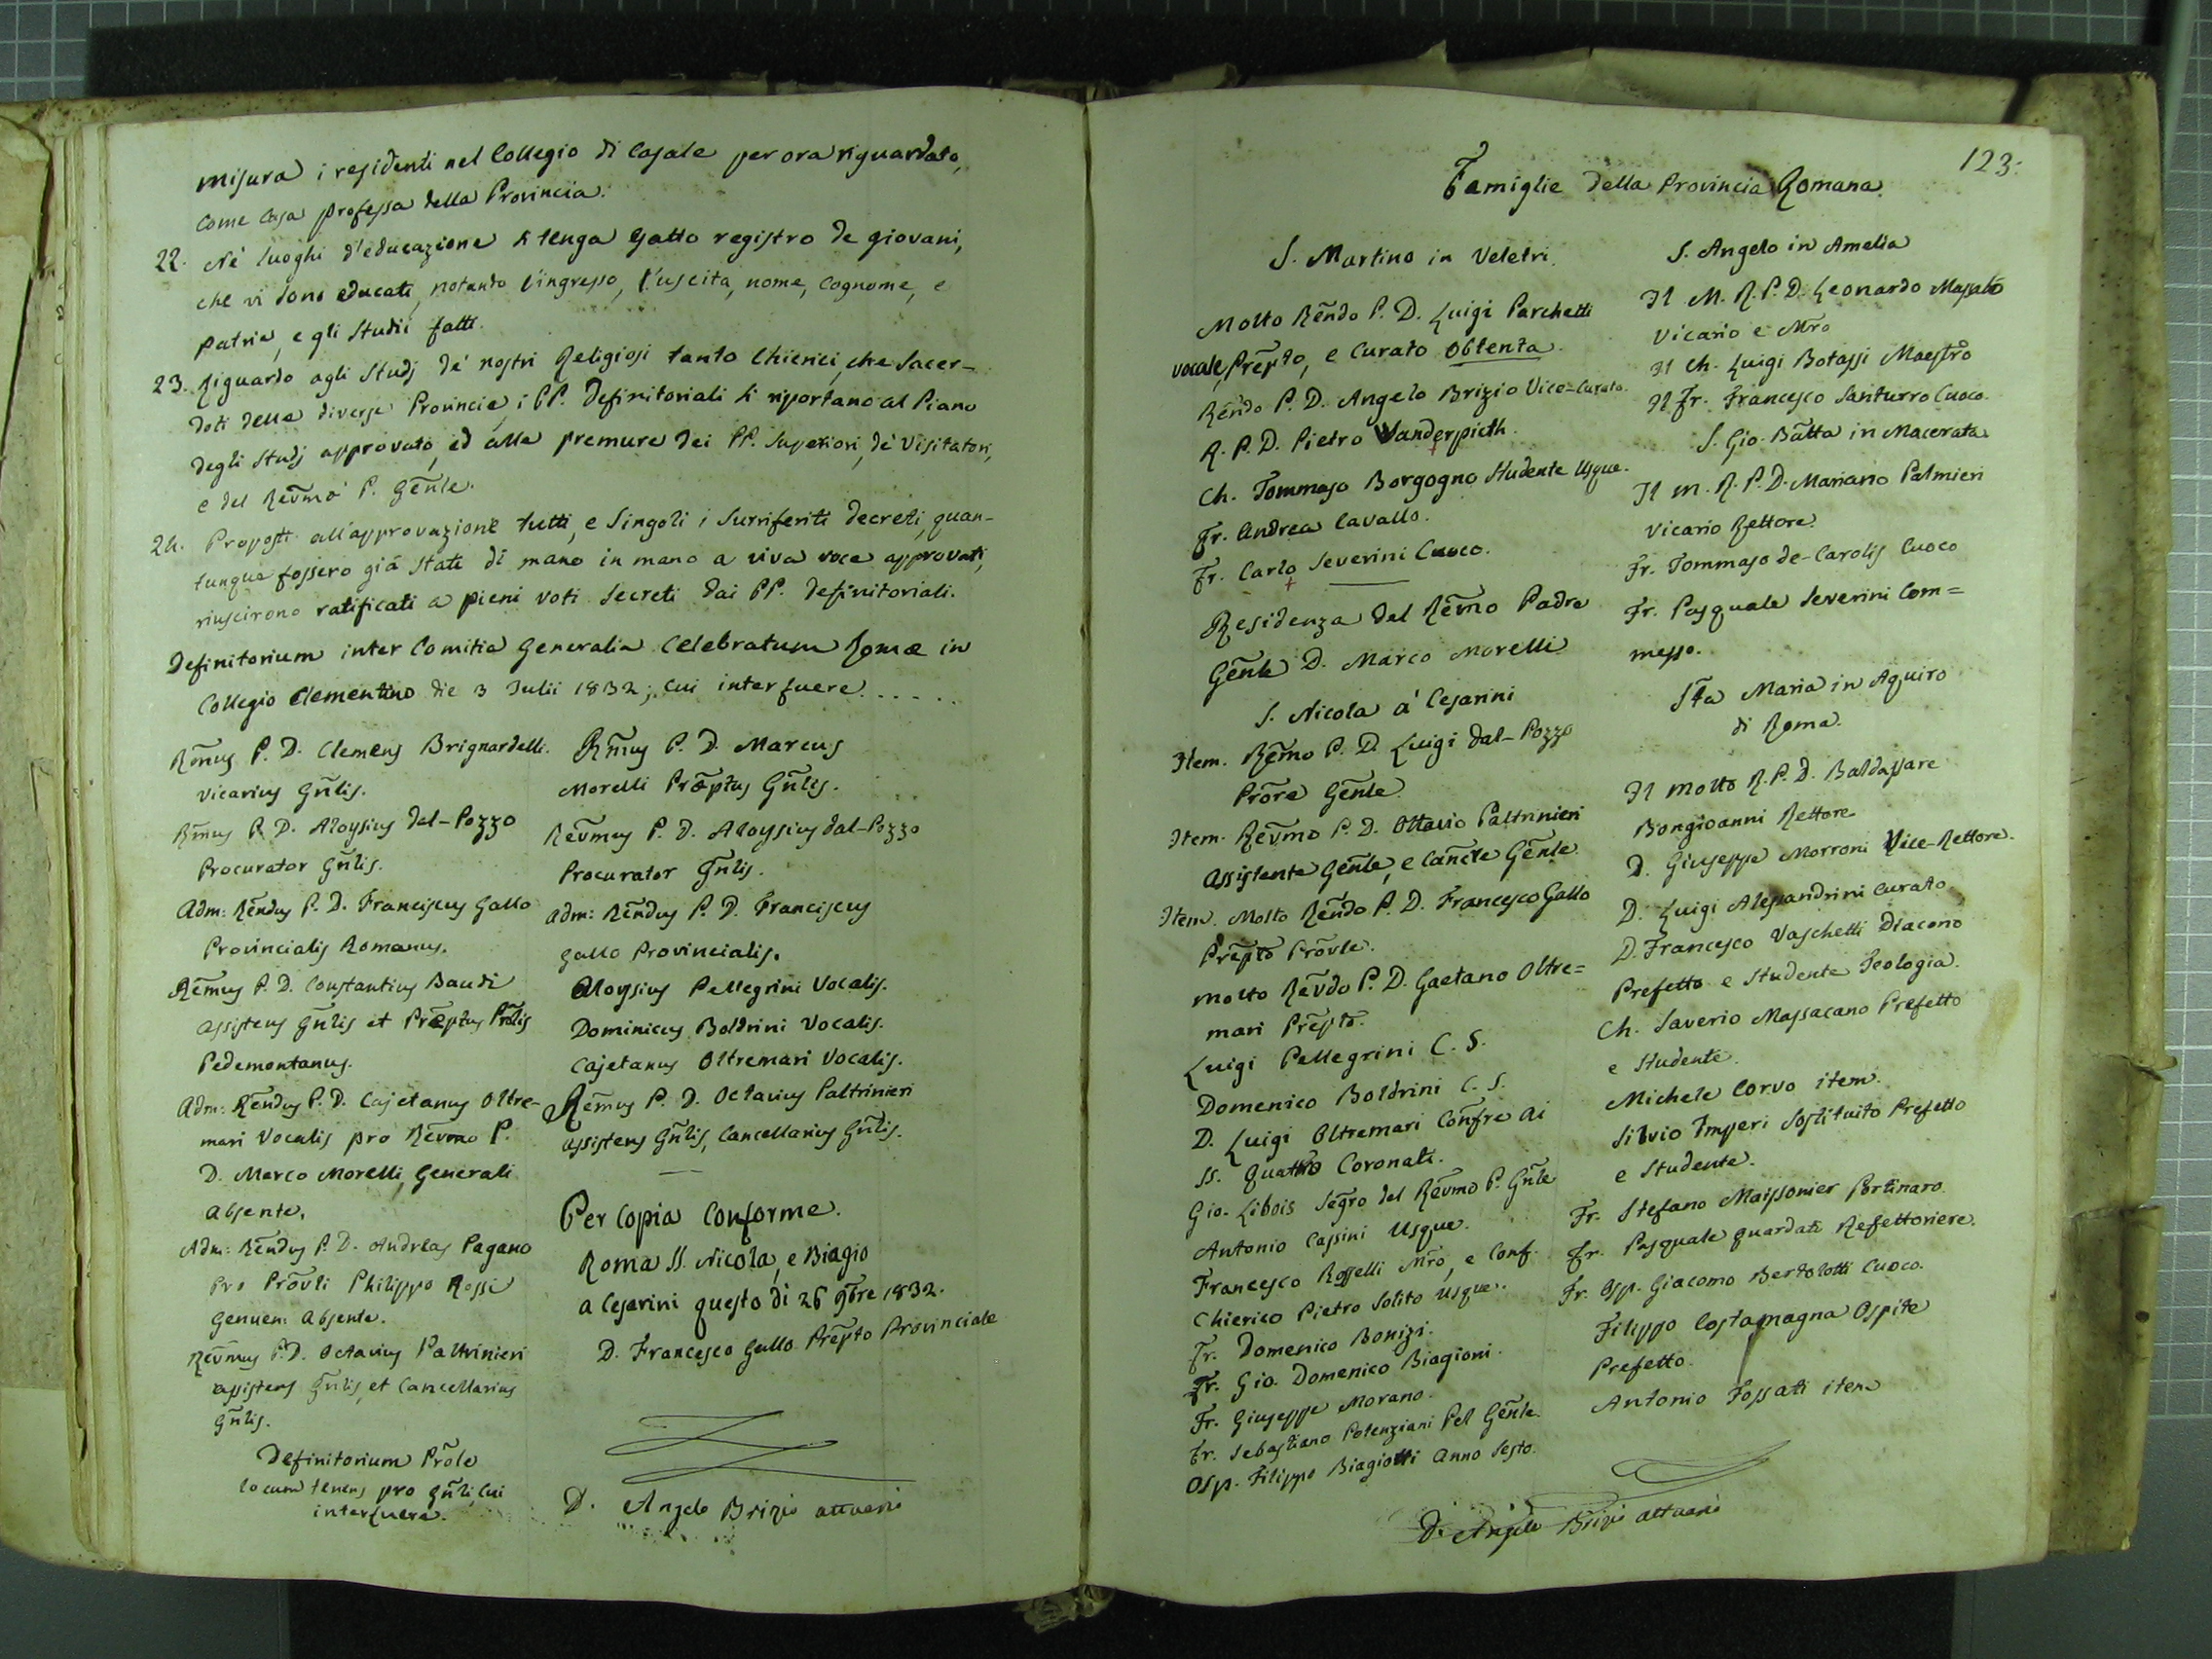 misura i residenti nel Collegio di Casale per ora riguardato,
come Casa professa della Provincia.
22. Nè luoghi d'educazione si tenga esatto registro de giovani,
che vi sono educati, notando l'ingresso, l'uscita, nome, cognome, e
patria, e gli studii fatti.
23. Riguardo agli Studj de' nostri Religiosi tanto Chierici, che Sacer-
doti delle diverse Provincie, i PP. Definitoriali si riportano al Piano
degli Studj approvato, ed alle premure dei PP. Superiori, de' Visitatori,
e del Revmo P. Genle.
24. Proposti all'approvazione tutti, e singoli i surriferiti decreti, quan-
tunque fossero già stati di mano in mano a viva voce approvati,
riuscirono ratificati a pieni voti secreti dai PP. Definitoriali.
Definitorium inter Comitia Generalia Celebratum Romæ in
Collegio Clementino die 3 Julii 1832; cui interfuere......
Rmus P. D. Clemens Brignardelli
Vicarius Gnlis.
Rmus P. D. Aloysius dal-Pozzo
Procurator Gnlis.
Adm: Rendus P. D. Franciscus Gallo
Provincialis Romanus.
Remus P. D. Constantius Baudi
assistens Gnlis et Præptus Prolis
Pedemontanus.
Adm: Rendus P. D. Cajetanus Oltre-
mari Vocalis pro Revmo P.
D. Marco Morelli, Generali
absente.
Adm: Rendus P. D. Andreas Pagano
pro Provli Philippo Rossi
Genuen: absente.
Revmus P. D. Octavius Paltrinieri
assistens Gnlis, et Cancellarius
Gnlis.
Definitorium Prole
locum tenens pro Gnli, cui
interfuere.
Rmus P. D. Marcus
Morelli Præptus Gnlis.
Revmus P. D. Aloysius dal-Pozzo
Procurator Gnlis.
Adm: Rendus P. D. Franciscus
Gallo Provincialis.
Aloysius Pellegrini Vocalis.
Dominicus Boldrini Vocalis.
Cajetanus Oltremari Vocalis.
Remus P. D. Octavius Paltrinieri
assistens Gnlis, Cancellarius Gnlis.
Per Copia Conforme.
Roma SS. Nicola, e Biagio
a Cesarini questo dì 26 9bre 1832.
D. Francesco Gallo Prepto Provinciale
D. Angelo Brizio attuario
123.
Famiglie della Provincia Romana.
S. Martino in Veletri.
Molto Rendo P. D. Luigi Parchetti
vocale, Prepto, e Curato Obtenta.
Rendo P. D. Angelo Brizio Vice-Curato.
R. P. D. Pietro Vanderpieth.
Ch. Tommaso Borgogno Studente Usque.
Fr. Andrea Cavallo.
Fr. Carlo Severini Cuoco.
Residenza del Revmo Padre
Genle D. Marco Morelli
S. Nicola a' Cesarini
Item. Remo P. D. Luigi dal-Pozzo
Prore Genle.
Item. Revmo P. D. Ottavio Paltrinieri
Assistente Genle, e Cancre Genle.
Item. Molto Rendo P. D. Francesco Gallo
Prepto Provle.
Molto Revdo P. D. Gaetano Oltre=
mari Prepto.
Luigi Pellegrini C. S.
Domenico Boldrini C. S.
D. Luigi Oltremari Confre ai
SS. Quattro Coronati.
Gio. Libois Segro del Revmo P. Gnle
Antonio Cassini Usque.
Francesco Rosselli Mro, e Conf.
Chierico Pietro Solito Usque.
Fr. Domenico Bonizi.
Fr. Gio. Domenico Biagioni.
Fr. Giuseppe Morano.
Fr. Sebastiano Potenziani Pel Genle.
Osp. Filippo Biagiotti Anno Sesto.
S. Angelo in Amelia
Il M. R. P. D. Leonardo
Vicario e Mro
Il Ch. Luigi Botassi Maestro
Il Fr. Francesco Santurro Cuoco.
S. Gio. Batta in Macerata
Il M. R. P. D. Mariano Palmieri
Vicario Rettore.
Fr. Tommaso de-Carolis Cuoco
Fr. Pasquale Severini Com=
messo.
Sta Maria in Aquiro
di Roma.
Il Molto R. P. D. Baldassare
Bongioanni Rettore
D. Giuseppe Morroni Vice-Rettore.
D. Luigi Alessandrini Curato.
D. Francesco Vaschetti Diacono
Prefetto e Studente Teologia.
Ch. Saverio Massacano Prefetto
e Studente.
Michele Corvo item.
Silvio Imperi Sostituito Prefetto
e Studente.
Fr. Stefano Maissonier Portinaro.
Fr. Pasquale Guardati Refettoriere.
Fr. Osp. Giacomo Bertolotti Cuoco.
Filippo Costamagna Ospite
Prefetto.
Antonio Fossati item
D. Angelo Brizio attuario